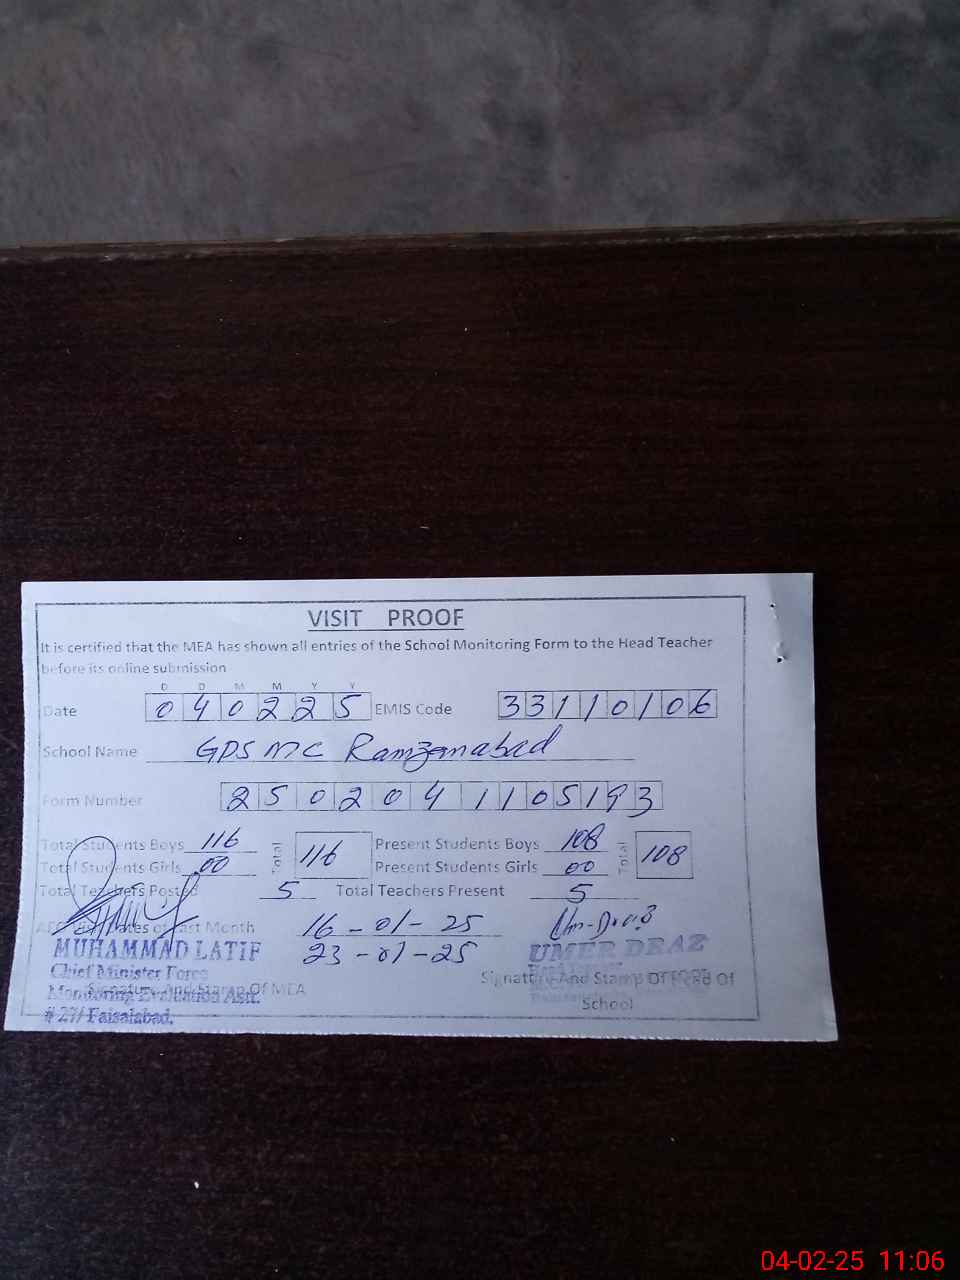 VISIT PROOF
It is certified that the MEA has shown all entries of the School Monitoring Form to the Head Teacher
before its online submission
D D M M Y Y
Date 040225 EMIS Code 33110106
School Name GPS MC Ramzanabad
Form Number 250204105193
Total Students Boys 116 Total 116 Present Students Boys 108 Total 108
Total Students Girls 00 Present Students Girls 00
Total Teachers Posted 5 Total Teachers Present 5
Dates of Last Month 16-01-25
23-01-25
MUHAMMAD LATIF
Chief Minister Force
Monitoring Evaluation Astt.
# 27/ Faisalabad.
Signature And Stamp Of MEA
UMER DRAZ
Signature And Stamp Of Head Of
School
04-02-25 11:06